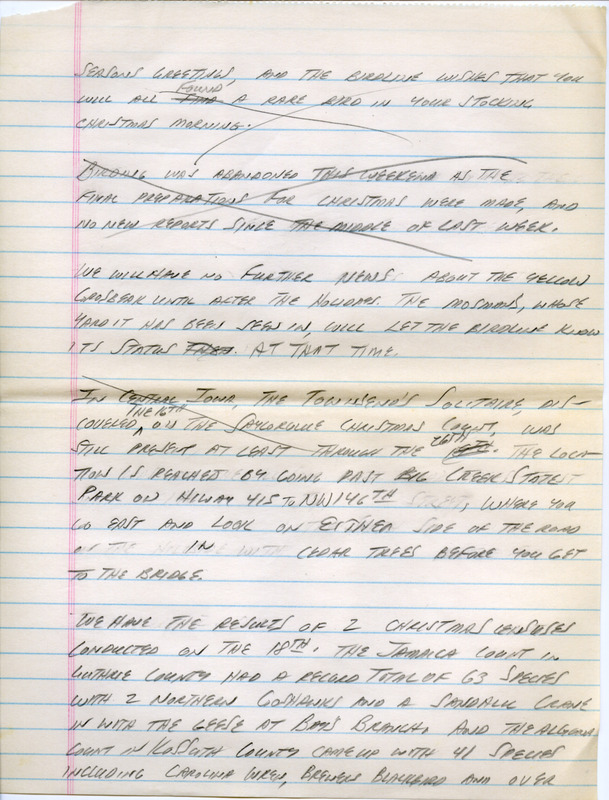 SEASONS GREETINGS, AND THE BIRDLINE WISHES THAT YOU
FOUND
WILL ALL FIND A RARE BIRD IN YOUR STOCKING
CHRISTMAS MORNING.
BIRDING WAS ABANDONED THIS WEEKEND AS THE
FINAL PREPARATIONS FOR CHRISTMAS WERE MADE, AND
NO NEW REPORTS SINCE THE MIDDLE OF LAST WEEK.
WE WILL HAVE NO FURTHER NEWS ABOUT THE YELLOW
GROSBEAK UNTIL AFTER THE HOLIDAYS. THE MOSMANS, WHOSE
YARD IT HAS BEEN SEEN IN, WILL LET THE BIRDLINE KNOW
ITS STATUS AT THAT TIME.
IN CENTRAL IOWA, THE TOWNSEND'S SOLITAIRE, DIS-
THE 16TH
COVERED, ON THE SAYLORVILLE CHRISTMAS COUNT, WAS
STILL PRESENT AT LEAST THROUGH THE 26TH. THE LOCA-
TION IS REACHED BY GOING PAST BIG CREEK STATE
PARK ON HIWAY 415 TO NW 146TH STREET, WHERE YOU
GO EAST AND LOOK ON EITHER SIDE OF THE ROAD
IN CEDAR TREES BEFORE YOU GET
TO THE BRIDGE.
WE HAVE THE RESULTS OF 2 CHRISTMAS CENSUSES
CONDUCTED ON THE 18TH. THE JAMAICA COUNT IN
GUTHRIE COUNTY HAD A RECORD TOTAL OF 63 SPECIES
WITH 2 NORTHERN GOSHAWKS AND A SANDHILL CRANE
IN WITH THE GEESE AT BAYS BRANCH. AND THE ALGONA
COUNT IN KOSSUTH COUNTY CAME UP WITH 41 SPECIES
INCLUDING CAROLINA WREN, BREWERS BLACKBIRD AND OVER